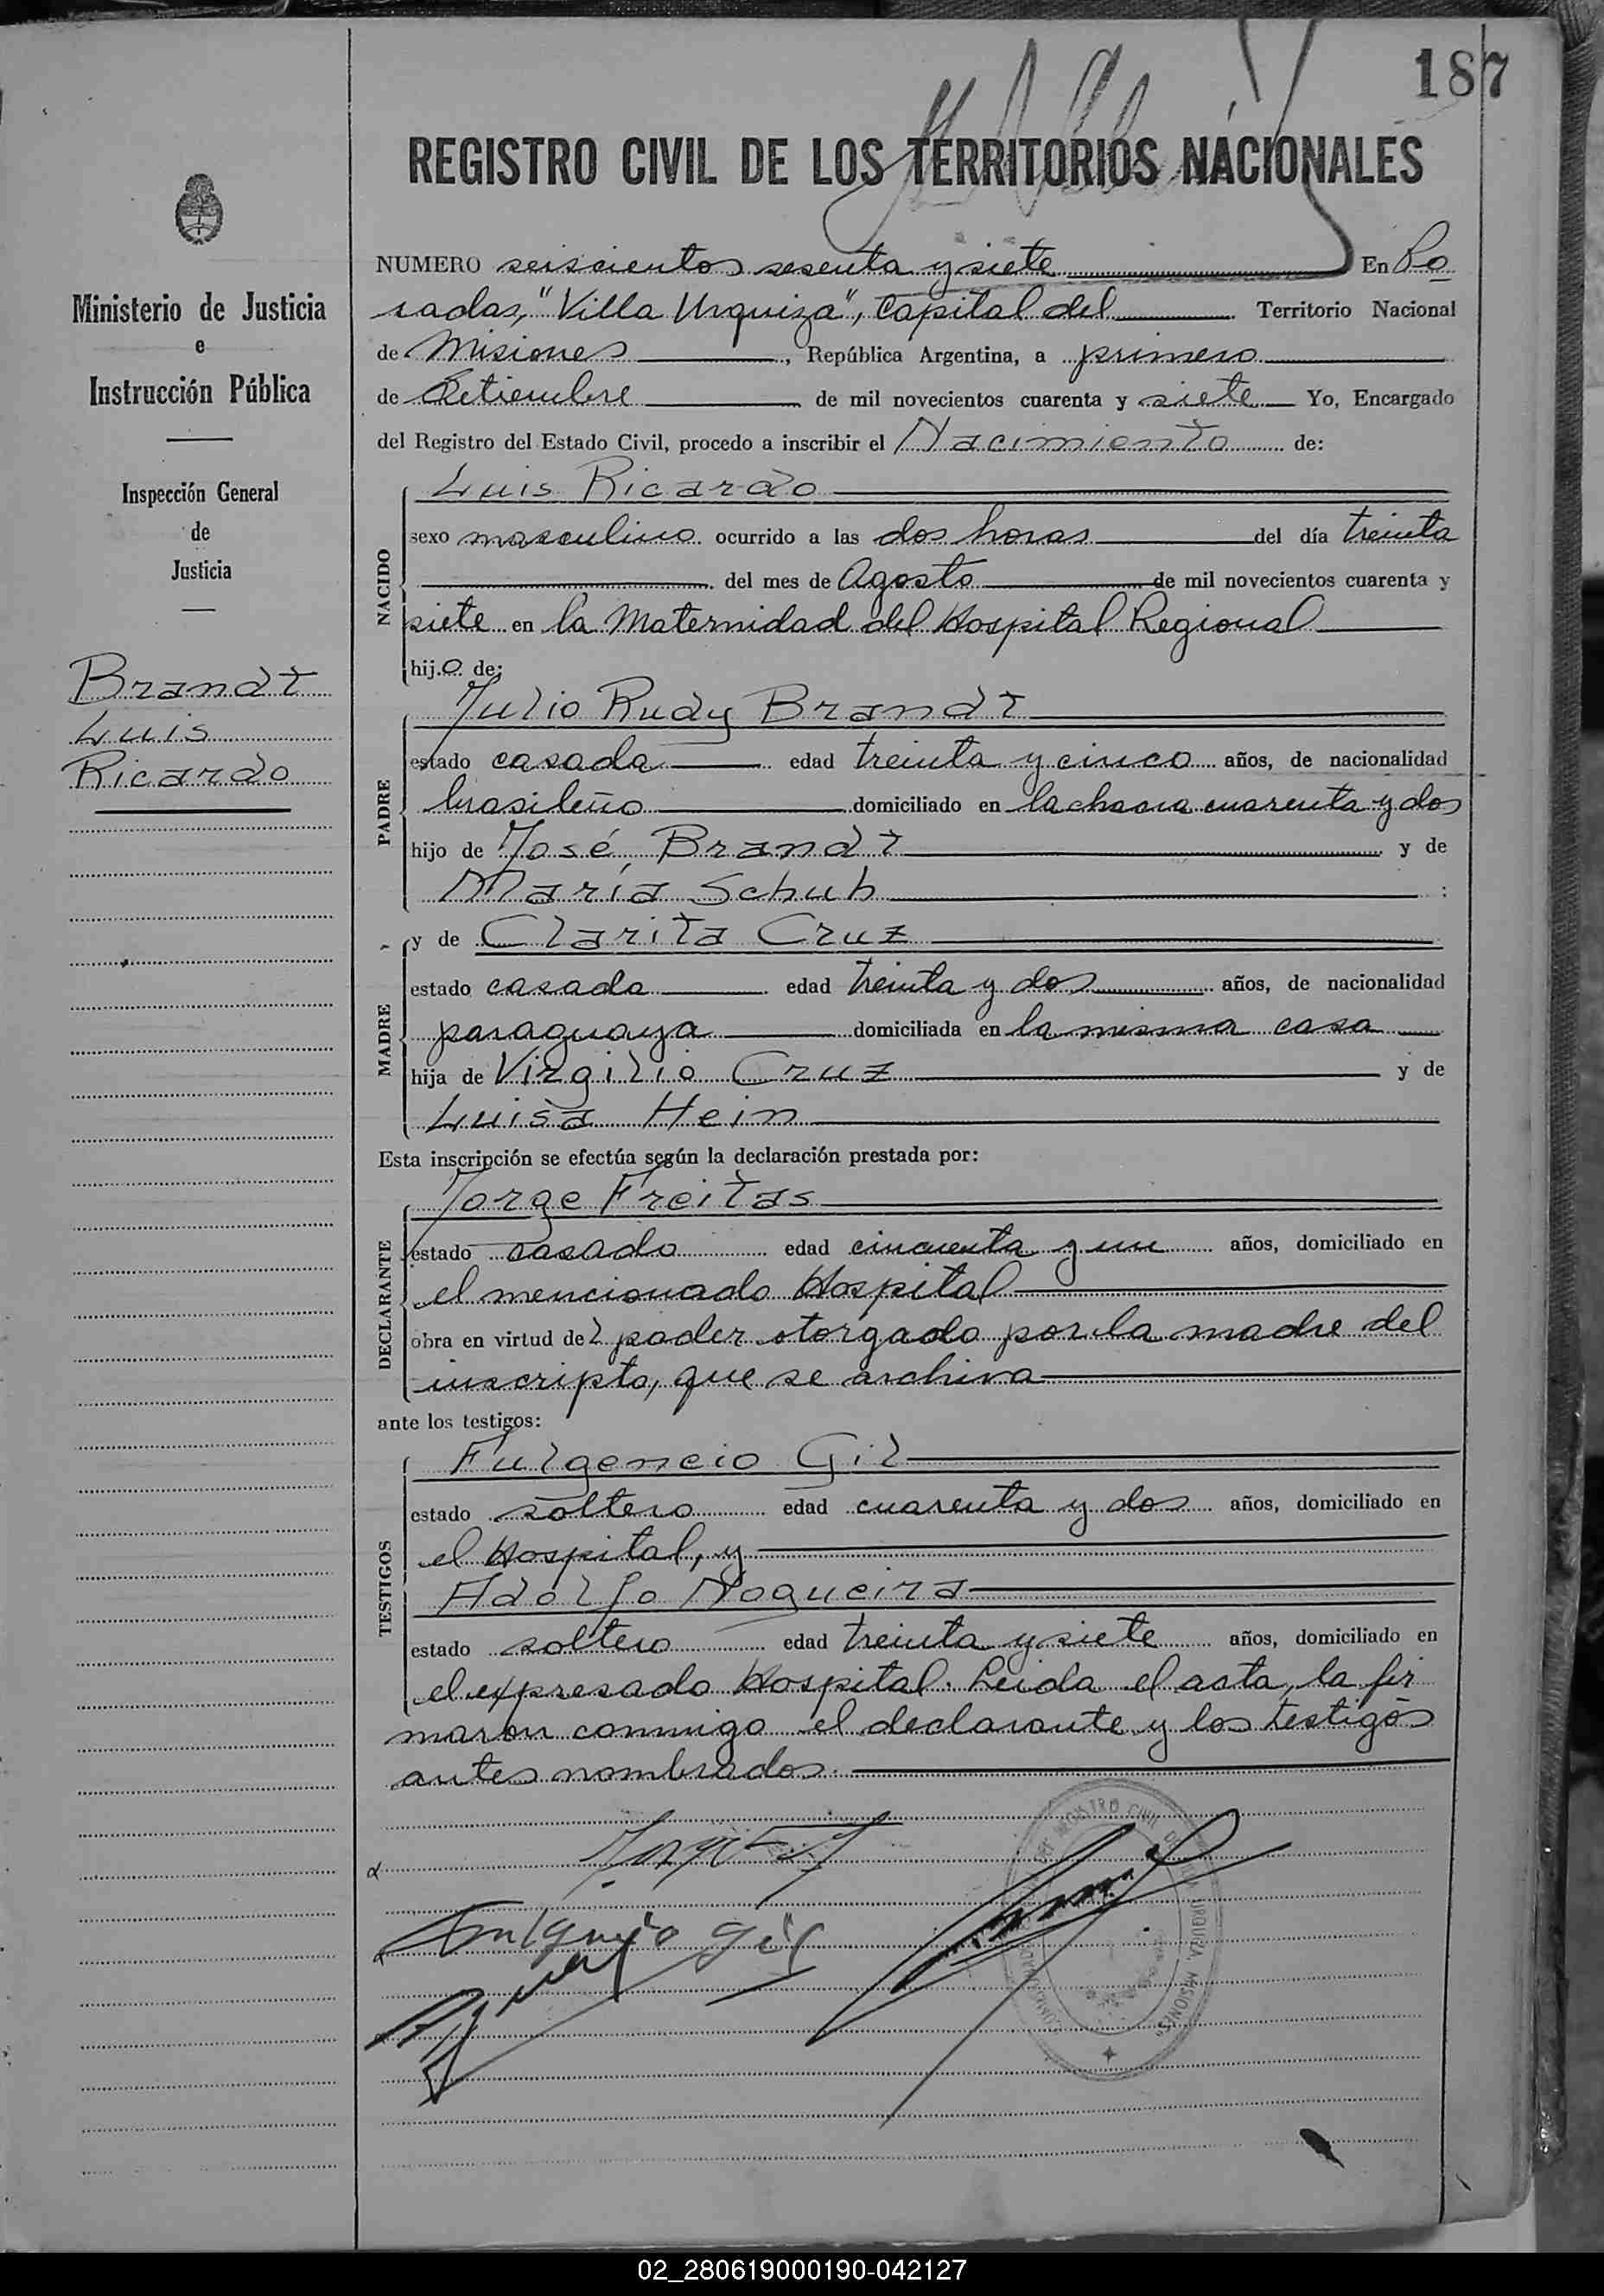 187
REGISTRO CIVIL DE LOS TERRITORIOS NACIONALES
Ministerio de Justicia
e
Instrucción Pública
Inspección General
de
Justicia
Brandt
Luis
Ricardo
NUMERO seiscientos sesenta y siete En Po
sadas, "Villa Urquiza", Capital del Territorio Nacional
de Misiones, República Argentina, a primero
de Setiembre de mil novecientos cuarenta y siete Yo, Encargado
del Registro del Estado Civil, procedo a inscribir el Nacimiento de:
NACIDO
Luis Ricardo
sexo masculino ocurrido a las dos horas del día treinta
del mes de Agosto de mil novecientos cuarenta y
siete en la Maternidad del Hospital Regional
hijo de:
PADRE
Julio Rudy Brandt
estado casado edad treinta y cinco años, de nacionalidad
brasileño domiciliado en la chacra cuarenta y dos
hijo de José Brandt y de
María Schuh :
MADRE
y de Clarita Cruz
estado casada edad treinta y dos años, de nacionalidad
paraguaya domiciliada en la misma casa
hija de Virgilio Cruz y de
Luisa Hein
Esta inscripción se efectúa según la declaración prestada por:
DECLARANTE
Jorge Freitas
estado casado edad cincuenta y un años, domiciliado en
el mencionado Hospital
obra en virtud del poder otorgado por la madre del
inscripto, que se archiva
ante los testigos:
TESTIGOS
Fulgencio Gil
estado soltero edad cuarenta y dos años, domiciliado en
el Hospital, y
Adolfo Nogueira
estado soltero edad treinta y siete años, domiciliado en
el expresado Hospital. Leida el acta, la fir
maron conmigo el declarante y los testigos
antes nombrados.
Fulgencio Gil
REGISTRO CIVIL DE VILLA URQUIZA MISIONES
02_280619000190-042127